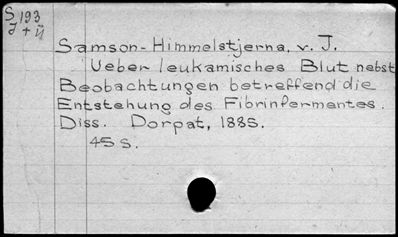 S 193
J + ü
Samson-Himmelstjerna, v. J.
Ueber leukamisches Blut nebst
Beobachtungen betreffend die
Entstehung des Fibrinfermentes.
Diss. Dorpat, 1885.
45 s.